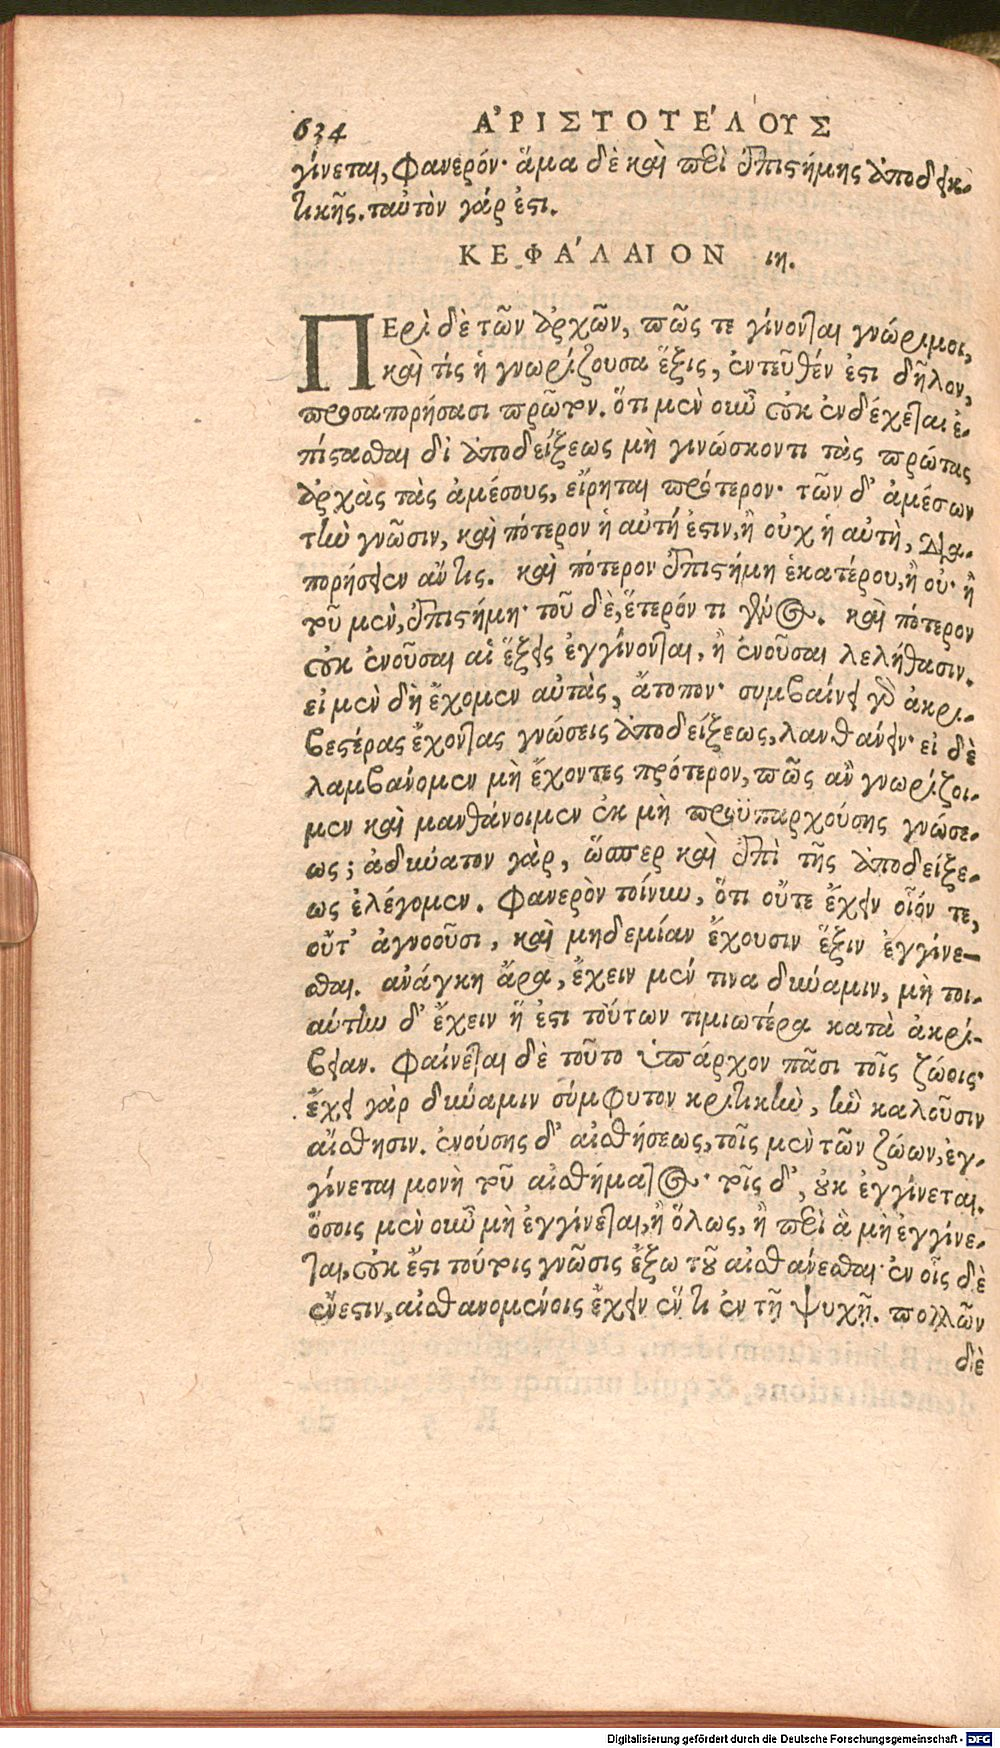 634 ΑʼΡΙΣΤΟΤΕ´ΛΟΥΣ
γίνεται, φανερόν· ἅμα δὲ καὶ περὶ ἐπιστήμης ἀποδεικ-
τικῆς. ταὐτὸν γάρ ἐστι.
ΚΕΦΑ´ΛΑΙΟΝ ιη.
ΠΕρὶ δὲ τῶν ἀρχῶν, πῶς τε γίνονται γνώριμοι,
καὶ τίς ἡ γνωρίζουσα ἕξις, ἐντεῦθέν ἐστι δῆλον,
προσαπορήσασι πρῶτον. ὅτι μὲν οὖν οὐκ ἐνδέχεται ἐ-
πίστασθαι δι ἀποδείξεως μὴ γινώσκοντι τὰς πρώτας
ἀρχὰς τὰς ἀμέσους, εἴρηται πρότερον· τῶν δ' ἀμέσων
τὴν γνῶσιν, καὶ πότερον ἡ αὐτή ἐστιν, ἢ οὐχ ἡ αὐτὴ, δια-
πορήσειεν ἄν τις. καὶ πότερον ἐπιστήμη ἑκατέρου, ἢ οὐ· ἢ
τοῦ μὲν, ἐπιστήμη· τοῦ δὲ, ἕτερόν τι γένος. καὶ πότερον
οὐκ ἐνοῦσαι αἱ ἕξεις ἐγγίνονται, ἢ ἐνοῦσαι λελήθασιν.
εἰ μὲν δὴ ἔχομεν αὐτὰς, ἄτοπον· συμβαίνει γὰρ ἀκρι-
βεστέρας ἔχοντας γνώσεις ἀποδείξεως, λανθάνειν· εἰ δὲ
λαμβάνομεν μὴ ἔχοντες πρότερον, πῶς ἂν γνωρίζοι-
μεν καὶ μανθάνοιμεν ἐκ μὴ προϋπαρχούσης γνώσε-
ως; ἀδύνατον γὰρ, ὥσπερ καὶ ἐπὶ τῆς ἀποδείξε-
ως ἐλέγομεν. φανερὸν τοίνυν, ὅτι οὔτε ἔχειν οἷόν τε,
οὔτ' ἀγνοοῦσι, καὶ μηδεμίαν ἔχουσιν ἕξιν ἐγγίνε-
σθαι. ἀνάγκη ἄρα, ἔχειν μέν τινα δύναμιν, μὴ τοι-
αύτην δ' ἔχειν ἥ ἐστι τούτων τιμιωτέρα κατὰ ἀκρί-
βειαν. φαίνεται δὲ τοῦτο ὑπάρχον πᾶσι τοῖς ζώοις·
ἔχει γὰρ δύναμιν σύμφυτον κριτικὴν, ἣν καλοῦσιν
αἴσθησιν. ἐνούσης δ' αἰσθήσεως, τοῖς μὲν τῶν ζώων, ἐγ-
γίνεται μονὴ τοῦ αἰσθήματος· τοῖς δ', οὐκ ἐγγίνεται.
ὅσοις μὲν οὖν μὴ ἐγγίνεται, ἢ ὅλως, ἢ περὶ ἃ μὴ ἐγγίνε-
ται, οὐκ ἔστι τούτοις γνῶσις ἔξω τοῦ αἰσθάνεσθαι· ἐν οἷς δὲ
ἔνεστιν, αἰσθανομένοις ἔχειν ἕν τι ἐν τῇ ψυχῇ. πολλῶν
δὲ
Digitalisierung gefördert durch die Deutsche Forschungsgemeinschaft - DFG